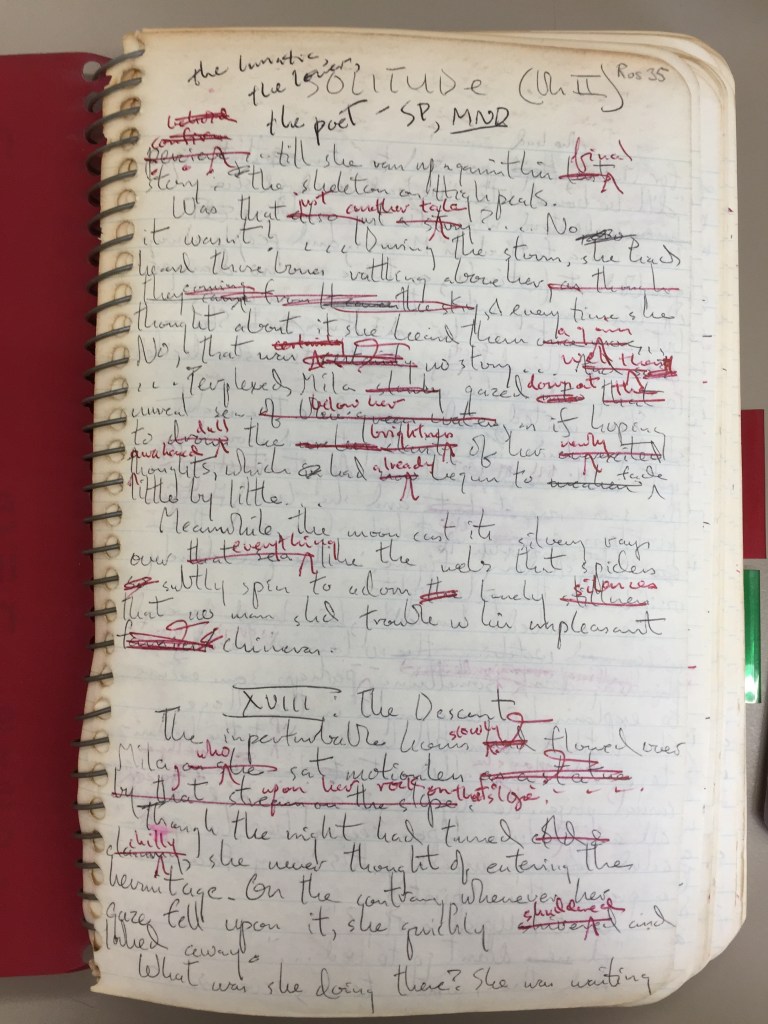 the lunatic,
the lover,
SOLITUDE (Ch II) Ros 35
the poet - SP, MND
before
confirm final
... till she ran up against his
story - the skeleton on High peak.
just another tale
Was that also just a story? .... No
it wasn't! .... During the storm, she had
heard those bones rattling above her, as though
they coming from the sky, & every time she
thought about it she heard them again
certainly
No, that was no story ... were they
.... Perplexed, Mila slowly gazed down at the
below her
unreal sea of, as if hoping
dull brightness newly
to drown the of her
awakened already fade
thoughts, which had begun to weaken
little by little...
Meanwhile the moon cast its silvery rays
everything
over that sea like the webs that spiders
silences
so subtly spin to adorn the lonely stillness
that no man shd trouble w his unpleasant
chimeras.
XVIII: The Descent
slowly
The imperturbable hours flowed over
who
Mila, sat motionless as a statue
upon her rock on that slope.
by that stream on the slope.
Though the night had turned
chilly
she never thought of entering the
hermitage. On the contrary, whenever her
shuddered
gaze fell upon it, she quickly shivered and
looked away.
What was she doing there? She was waiting